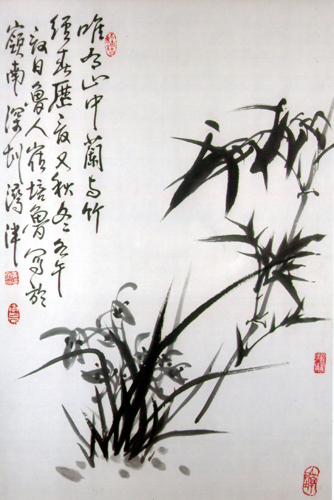 唯有山中蘭与竹
經春歷夏又秋冬壬午
夏日魯人崔培魯写於
嶺南深圳湾泮